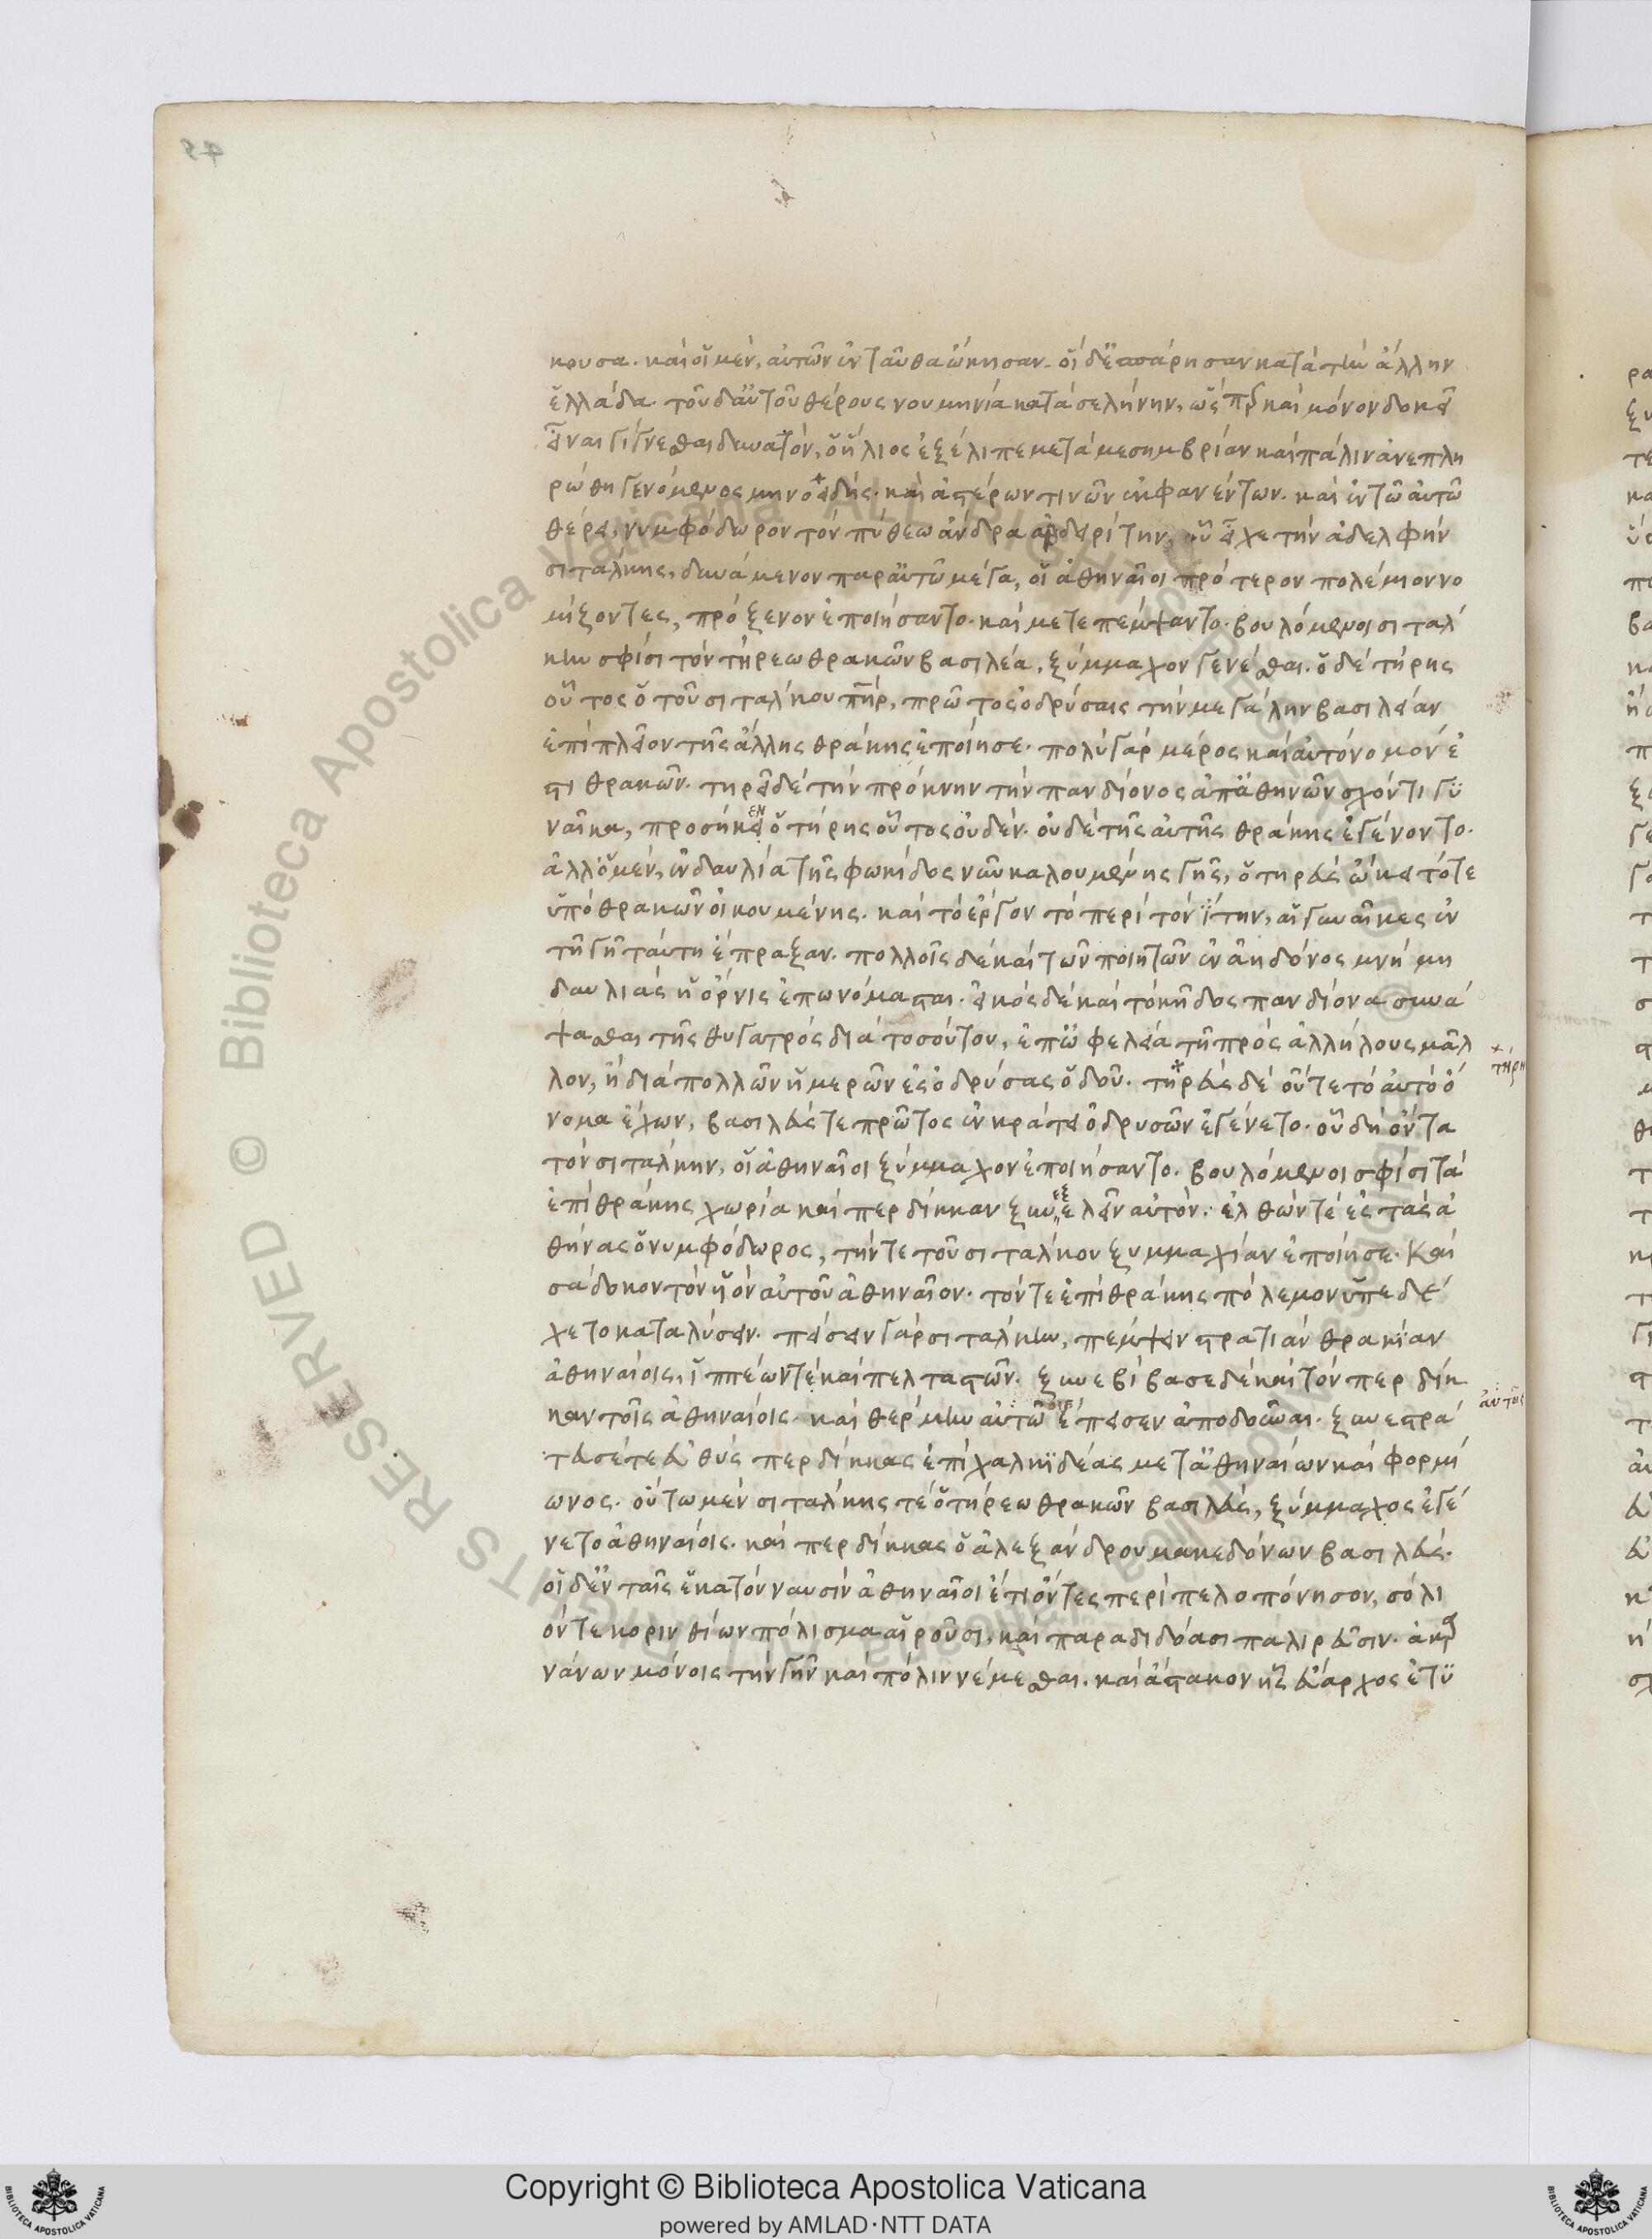 κουσα. καὶ οἱ μὲν, αὐτῶν ἐνταῦθα ὤκησαν. οἱ δἐσπάρησαν κατὰ τὴν ἄλλην
ἑλλάδα. τοῦ δ' αὐτοῦ θέρους νουμηνία κατὰ σελήνην, ὥσπερ καὶ μόνον δοκεῖ
εἶναι γίγνεσθαι δυνατὸν, ὁ ἥλιος ἐξέλιπε μετὰ μεσημβρίαν καὶ πάλιν ἀνεπλη
ρώθη γενόμενος μηνοειδής. καὶ ἀστέρων τινῶν ἐκφανέντων. καὶ ἐν τῶ αὐτῶ
θέρει, νυμφόδωρον τὸν πύθεω ἄνδρα ἀβδηρίτην, οὗ εἶχε τὴν ἀδελφὴν
σιτάλκης, δυνάμενον παρ' αὐτῶ μέγα, οἱ ἀθηναῖοι πρότερον πολέμιον νο
μίζοντες, πρόξενον ἐποιήσαντο. καὶ μετεπέμψαντο. βουλόμενοι σιτάλ
κην σφίσι τὸν τήρεω θρακῶν βασιλέα, ξύμμαχον γενέσθαι. ὁ δὲ τήρης
οὗτος ὁ τοῦ σιτάλκου πῆρ, πρῶτος ὀδρύσαις τὴν μεγάλην βασιλείαν
ἐπὶ πλεῖον τῆς ἄλλης θράκης ἐποίησε. πολὺ γὰρ μέρος καὶ αὐτόνομόν ἐ
στι θρακῶν. τηρεῖ δὲ τὴν πρόκνην τὴν πανδίονος ἀπ' ἀθηνῶν σχόντι γυ
ναῖκα, προσήκει εν ὁ τήρης οὗτος οὐδέν. οὐδὲ τῆς αὐτῆς θράκης ἐγένοντο.
ἀλλ' ὁ μὲν, ἐν δαυλία τῆς φωκίδος νῦν καλουμένης γῆς, ὁ τηρεὺς ὤκει τότε
ὑπὸ θρακῶν οἰκουμένης. καὶ τὸ ἔργον τὸ περὶ τὸν ἴτυν, αἱ γυναῖκες ἐν
τῆ γῆ ταύτη ἔπραξαν. πολλοῖς δὲ καὶ τῶν ποιητῶν ἐν ἀηδόνος μνήμη
δαυλιὰς ἡ ὄρνις ἐπωνόμασται. εἰκὸς δὲ καὶ τὸ κῆδος πανδίονα συνά
ψασθαι τῆς θυγατρὸς διὰ τοσούτου, ἐπ' ὠφελεία τῆ πρὸς ἀλλήλους μᾶλ
λον, ἢ διὰ πολλῶν ἡμερῶν ἐς ὀδρύσας ὁδοῦ. τηρεὺς δὲ οὔτε τὸ αὐτὸ ὄ
+ τήρη
νομα ἔχων, βασιλεύς τε πρῶτος ἐν κράτει ὀδρυσῶν ἐγένετο. οὗ δὴ ὄντα
τὸν σιτάλκην, οἱ ἀθηναῖοι ξύμμαχον ἐποιήσαντο. βουλόμενοι σφίσι τὰ
ἐπὶ θράκης χωρία καὶ περδίκκαν ξυνεξελεῖν αὐτόν. ἐλθών τε ἐς τὰς ἀ
θήνας ὁ νυμφόδωρος, τήν τε τοῦ σιτάλκου ξυμμαχίαν ἐποίησε. καὶ
σάδοκον τὸν υἱὸν αὐτοῦ ἀθηναῖον. τόν τε ἐπὶ θράκης πόλεμον ὑπεδέ
χετο καταλύσειν. πείσειν γὰρ σιτάλκην, πέμψειν στρατιὰν θρακίαν
ἀθηναίοις, ἱππέων τὲ καὶ πελταστῶν. ξυνεβίβασε δὲ καὶ τὸν περδίκ
καν τοῖς ἀθηναίοις. καὶ θέρμην αὐτῶ ἔπεισεν ἀποδοῦναι. ξυνεστρά
αὐτοῖς
τευσέ τε εὐθὺς περδίκκας ἐπὶ χαλκιδέας μετ' ἀθηναίων καὶ φορμί
ωνος. οὕτω μὲν σιτάλκης τὲ ὁ τήρεω θρακῶν βασιλεὺς, ξύμμαχος ἐγέ
νετο ἀθηναίοις. καὶ περδίκκας ὁ ἀλεξάνδρου μακεδόνων βασιλεύς.
οἱ δ' ἐν ταῖς ἑκατὸν ναυσὶν ἀθηναῖοι ἔτι ὄντες περὶ πελοπόννησον, σόλι
όν τε κορινθίων πόλισμα αἱροῦσι, καὶ παραδιδόασι παλιρεῦσιν. ἀκαρ
νάνων μόνοις τὴν γῆν καὶ πόλιν νέμεσθαι. καὶ ἀστακον ἧς εὔαρχος ἐτυ
Copyright © Biblioteca Apostolica Vaticana
powered by AMLAD·NTT DATA